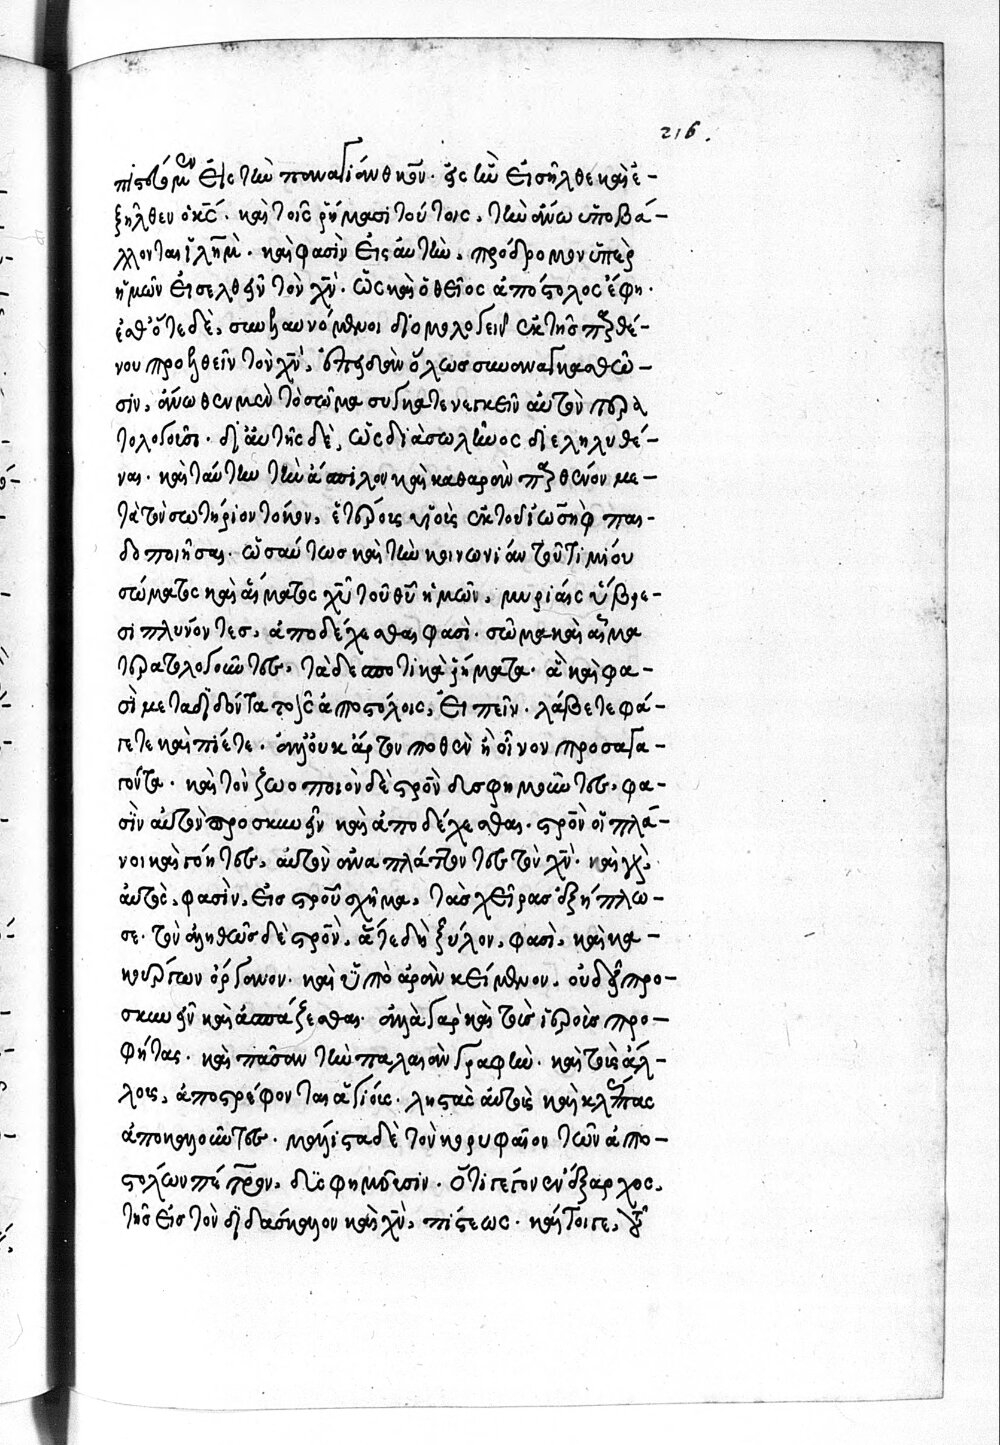 216.
πιστεύομεν εἰς τὴν παναγίαν θκον. ἐς ἣν εἰσῆλθε καὶ ἐ-
ξῆλθεν ὁ κς. καὶ τοῖς ῥήμασι τούτοις, τὴν ἄνω ὑποβά-
λλονται ἱλημ. καὶ φασὶν εἰς αὐτὴν, πρόδρομον ὑπὲρ
ἡμῶν εἰσελθεῖν τὸν χν. ὡς καὶ ὁ θεῖος ἀπόστολος ἔφη.
ἔσθ' ὅτε δὲ, συνελαυνόμενοι ὁμολογεῖν ἐκ τῆς παρθέ-
νου προελθεῖν τὸν χν, ἐπειδὰν ὅλως συναναγκασθῶ-
σιν, ἄνωθεν μὲν τὸ σῶμα συγκατενεγκεῖν αὐτὸν τερα
τολογοῦσι. δι' αὐτῆς δὲ, ὡς διὰ σωλῆνος διεληλυθέ-
ναι. καὶ ταύτην τὴν ἄσπιλον καὶ καθαρὰν παρθένον με-
τὰ τὸν σωτήριον τόκον, ἑτέρους υἱοὺς ἐκ τοῦ ἰωσὴφ παι-
δοποιῆσαι. ὡσαύτως καὶ τὴν κοινωνίαν τοῦ τιμίου
σώματος καὶ αἵματος χυ τοῦ θυ ἡμῶν, μυρίαις ὕβρε-
σι πλύνοντες, ἀποδέχεσθαι φασὶ. σῶμα καὶ αἷμα
τερατολογοῦντες, τὰ δεσποτικὰ ῥήματα. ἃ καὶ φα-
σὶ μεταδιδόντα τοῖς ἀποστόλοις, εἰπεῖν. λάβετε φά-
γετε καὶ πίετε. ἀλλ' οὐκ ἄρτον ποθὲν ἢ οἶνον προσαγα-
γόντα. καὶ τὸν ζωοποιὸν δὲ στρον δυσφημοῦντες, φα-
σὶν αὐτὸν προσκυνεῖν καὶ ἀποδέχεσθαι. στρον οἱ πλά-
νοι καὶ γόητες, αὐτὸν ἀναπλάττοντες τὸν χν. καὶ γὰρ
αὐτὸς, φασὶν, εἰς στρου σχῆμα, τὰς χεῖρας ἐξήπλω-
σε. τὸν ἀληθῶς δὲ στρον, ἅτε δὴ ξύλον, φασὶ, καὶ κα-
κούργων ὄργανον. καὶ ὑπὸ ἀρὰν κείμενον, οὐ δεῖ προ-
σκυνεῖν καὶ ἀσπάζεσθαι. ἀλλὰ γὰρ καὶ τοὺς ἱεροὺς προ-
φήτας. καὶ πᾶσαν τὴν παλαιὰν γραφὴν. καὶ τοὺς ἄλ-
λους, ἀποστρέφονται ἁγίους. ληστὰς αὐτοὺς καὶ κλέπτας
ἀποκαλοῦντες. μάλιστα δὲ τὸν κορυφαῖον τῶν ἀπο-
στόλων πέτρον, δυσφημοῦσιν. ὅτι γέγονεν ἔξαρχος,
τῆς εἰς τὸν διδάσκαλον καὶ χν, πίστεως. καίτοιγε,